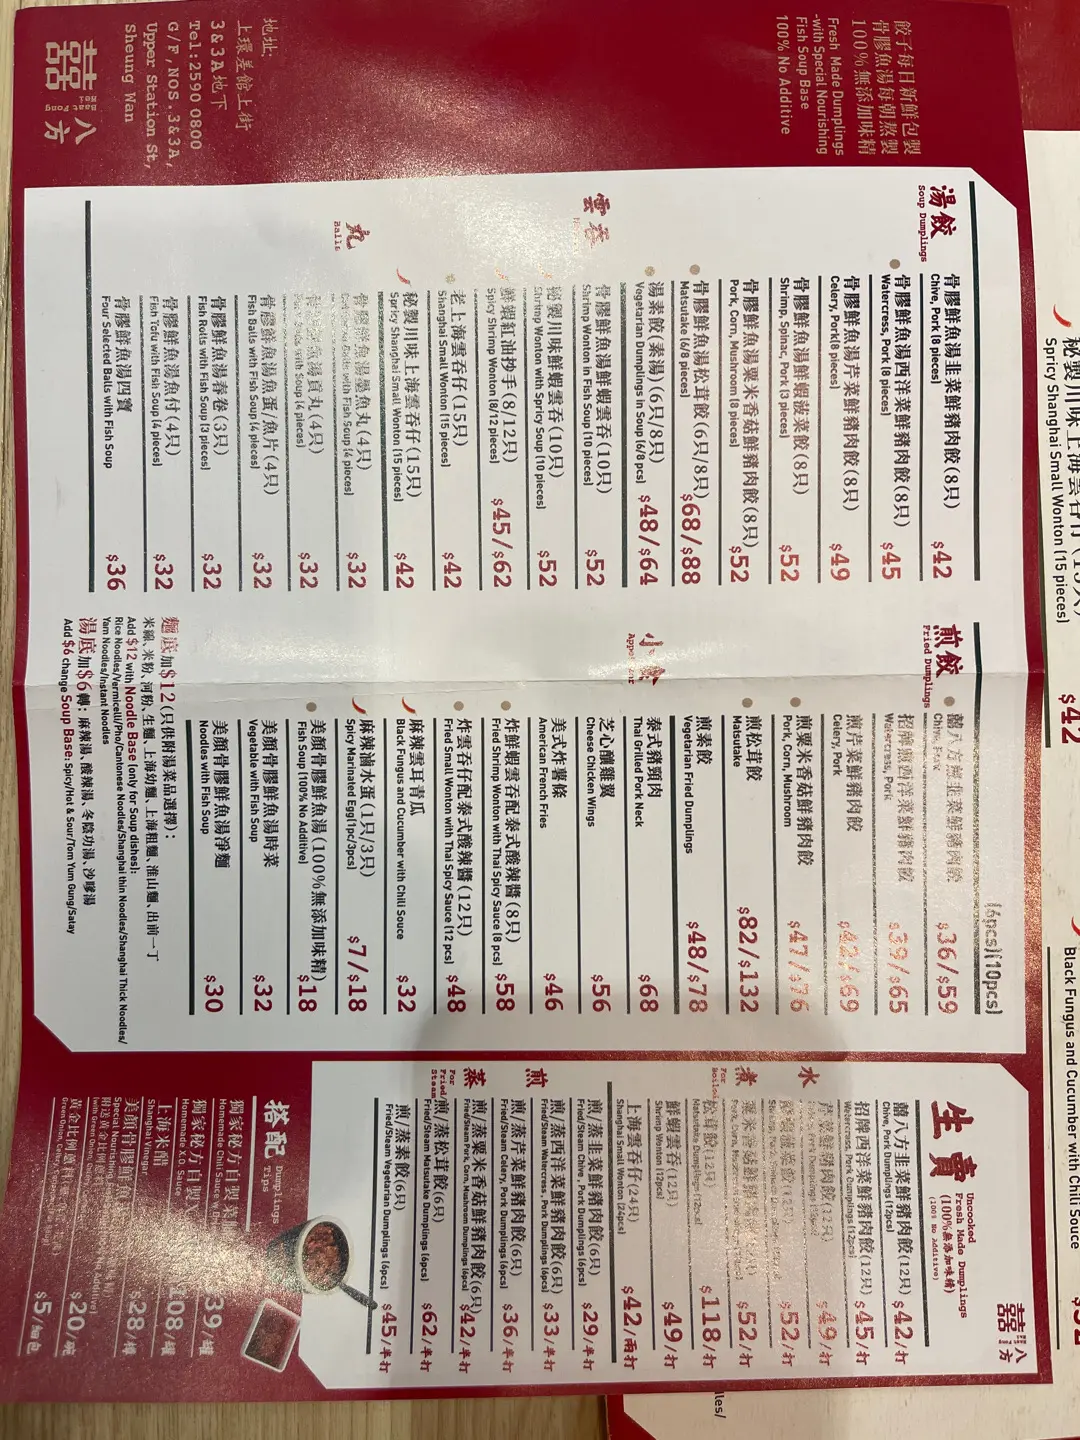 餃子每日新鮮包製
骨膠魚湯每朝熬製
100%無添加味精
Fresh Made Dumplings
-with Special Nourishing
Fish Soup Base
100% No Additive
地址:
上環差館上街
3&3A地下
Tel:2590 0800
G/F,NOS.3&3A,
Upper Station St,
Sheung Wan
囍
八方
湯餃
Soup Dumplings
骨膠鮮魚湯韭菜鮮豬肉餃(8只) $42
Chive, Pork (8 pieces)
骨膠鮮魚湯西洋菜鮮豬肉餃(8只) $45
Watercress, Pork (8 pieces)
骨膠鮮魚湯芹菜鮮豬肉餃(8只) $49
Celery, Pork(8 pieces)
骨膠鮮魚湯鮮蝦菠菜餃(8只) $52
Shrimp, Spinac, Pork (3 pieces)
骨膠鮮魚湯粟米香菇鮮豬肉餃(8只) $52
Pork, Corn, Mushroom (8 pieces)
骨膠鮮魚湯松茸餃(6只/8只) $68/$88
Matsutake (6/8 pieces)
湯素餃(素湯)(6只/8只) $48/$64
Vegetarian Dumplings in Soup (6/8 pcs)
雲吞
骨膠鮮魚湯鮮蝦雲吞(10只) $52
Shrimp Wonton in Fish Soup (10 pieces)
秘製川味鮮蝦雲吞(10只) $52
Shrimp Wonton with Spricy Soup (10 pieces)
鮮蝦紅油抄手(8/12只) $45/$62
Spicy Shrimp Wonton (8/12 pieces)
老上海雲吞仔(15只) $42
Shanghai Small Wonton (15 pieces)
秘製川味上海雲吞仔(15只) $42
Spricy Shanghai Small Wonton (15 pieces)
丸
Balls
骨膠鮮魚湯墨魚丸(4只) $32
Balls with Fish Soup (4 pieces)
魚湯貢丸(4只) $32
Balls with Soup (4 pieces)
骨膠鮮魚湯魚蛋/魚片(4只) $32
Fish Balls with Fish Soup (4 pieces)
骨膠鮮魚湯春卷(3只) $32
Fish Rolls with Fish Soup (3 pieces)
骨膠鮮魚湯魚付(4只) $32
Fish Tofu with Fish Soup (4 pieces)
骨膠鮮魚湯四寶 $36
Four Selected Balls with Fish Soup
煎餃
Fried Dumplings
(6pcs)(10pcs)
囍八方煎韭菜鮮豬肉餃 $36/$59
Chive, Pork
招牌煎西洋菜鮮豬肉餃 $39/$65
Watercress, Pork
煎芹菜鮮豬肉餃 $42/$69
Celery, Pork
煎粟米香菇鮮豬肉餃 $47/$76
Pork, Corn, Mushroom
煎松茸餃 $82/$132
Matsutake
煎素餃 $48/$78
Vegetarian Fried Dumplings
小食
泰式豬頸肉 $68
Thai Grilled Pork Neck
芝心釀雞翼 $56
Cheese Chicken Wings
美式炸薯條 $46
American French Fries
炸鮮蝦雲吞配泰式酸辣醬(8只) $58
Fried Shrimp Wonton with Thai Spicy Sauce (8 pcs)
炸雲吞仔配泰式酸辣醬(12只) $48
Fried Small Wonton with Thai Spicy Sauce (12 pcs)
麻辣雲耳青瓜 $32
Black Fungus and Cucumber with Chili Souce
麻辣滷水蛋(1只/3只) $7/$18
Spicy Marinated Egg(1pc/3pcs)
美顏骨膠鮮魚湯(100%無添加味精) $18
Fish Soup (100% No Additive)
美顏骨膠鮮魚湯時菜 $32
Vegetable with Fish Soup
美顏骨膠鮮魚湯淨麵 $30
Noodles with Fish Soup
麵底加$12(只供附湯菜品選擇):
米線、米粉、河粉、生麵、上海幼麵、上海粗麵、淮山麵、出前一丁
Add $12 with Noodle Base (only for Soup dishes):
Rice Noodles/Vermicelli/Pho/Cantonese Noodles/Shanghai thin Noodles/Shanghai Thick Noodles/
Yam Noodles/Instant Noodles
湯底加$6轉: 麻辣湯、酸辣湯、冬陰功湯、沙嗲湯
Add $6 change Soup Base: Spicy/Hot & Sour/Tom Yum Gung/Satay
生賣
Uncooked
Fresh Made Dumplings
(100%無添加味精)
(100% No Additive)
囍
八方
水煮
For
囍八方韭菜鮮豬肉餃(12只) $42/打
Chive, Pork Dumplings (12pcs)
招牌西洋菜鮮豬肉餃(12只) $45/打
Watercress, Pork Dumplings (12pcs)
芹菜鮮豬肉餃(12只) $49/打
菠菜餃(12只) $52/打
粟米香菇鮮豬肉餃 $52/打
松茸餃(12只) $118/打
Matsutake Dumplings (12pcs)
鮮蝦雲吞(12只) $49/打
Shrimp Wonton (12pcs)
上海雲吞仔(24只) $42/兩打
Shanghai Small Wonton (24pcs)
煎蒸
For
Fried/
Steam
煎/蒸韭菜鮮豬肉餃(6只) $29/半打
Fried/Steam Chive, Pork Dumplings (6pcs)
煎/蒸西洋菜鮮豬肉餃(6只) $33/半打
Fried/Steam Watercress, Pork Dumplings (6pcs)
煎/蒸芹菜鮮豬肉餃(6只) $36/半打
Fried/Steam Celery, Pork Dumplings (6pcs)
煎/蒸粟米香菇鮮豬肉餃(6只) $42/半打
Fried/Steam Pork, Corn, Mushroom Dumplings (6pcs)
煎/蒸松茸餃(6只) $62/半打
Fried/Steam Matsutake Dumplings (6pcs)
煎/蒸素餃(6只) $45/半打
Fried/Steam Vegetarian Dumplings (6pcs)
搭配
Dumplings
Tips
獨家秘方自製菜 39/罐
Homemade Chili Sauce
獨家秘方自製 108/罐
Homemade X.O. Sauce
上海米醋 $28/樽
Shanghai Vinegar
美顏骨膠鮮魚 $20/碗
Special Nourishing
黃金比例醬料 $5/包
秘製川味上海雲吞仔(15只) $42
Spricy Shanghai Small Wonton (15 pieces)
Black Fungus and Cucumber with Chili Souce